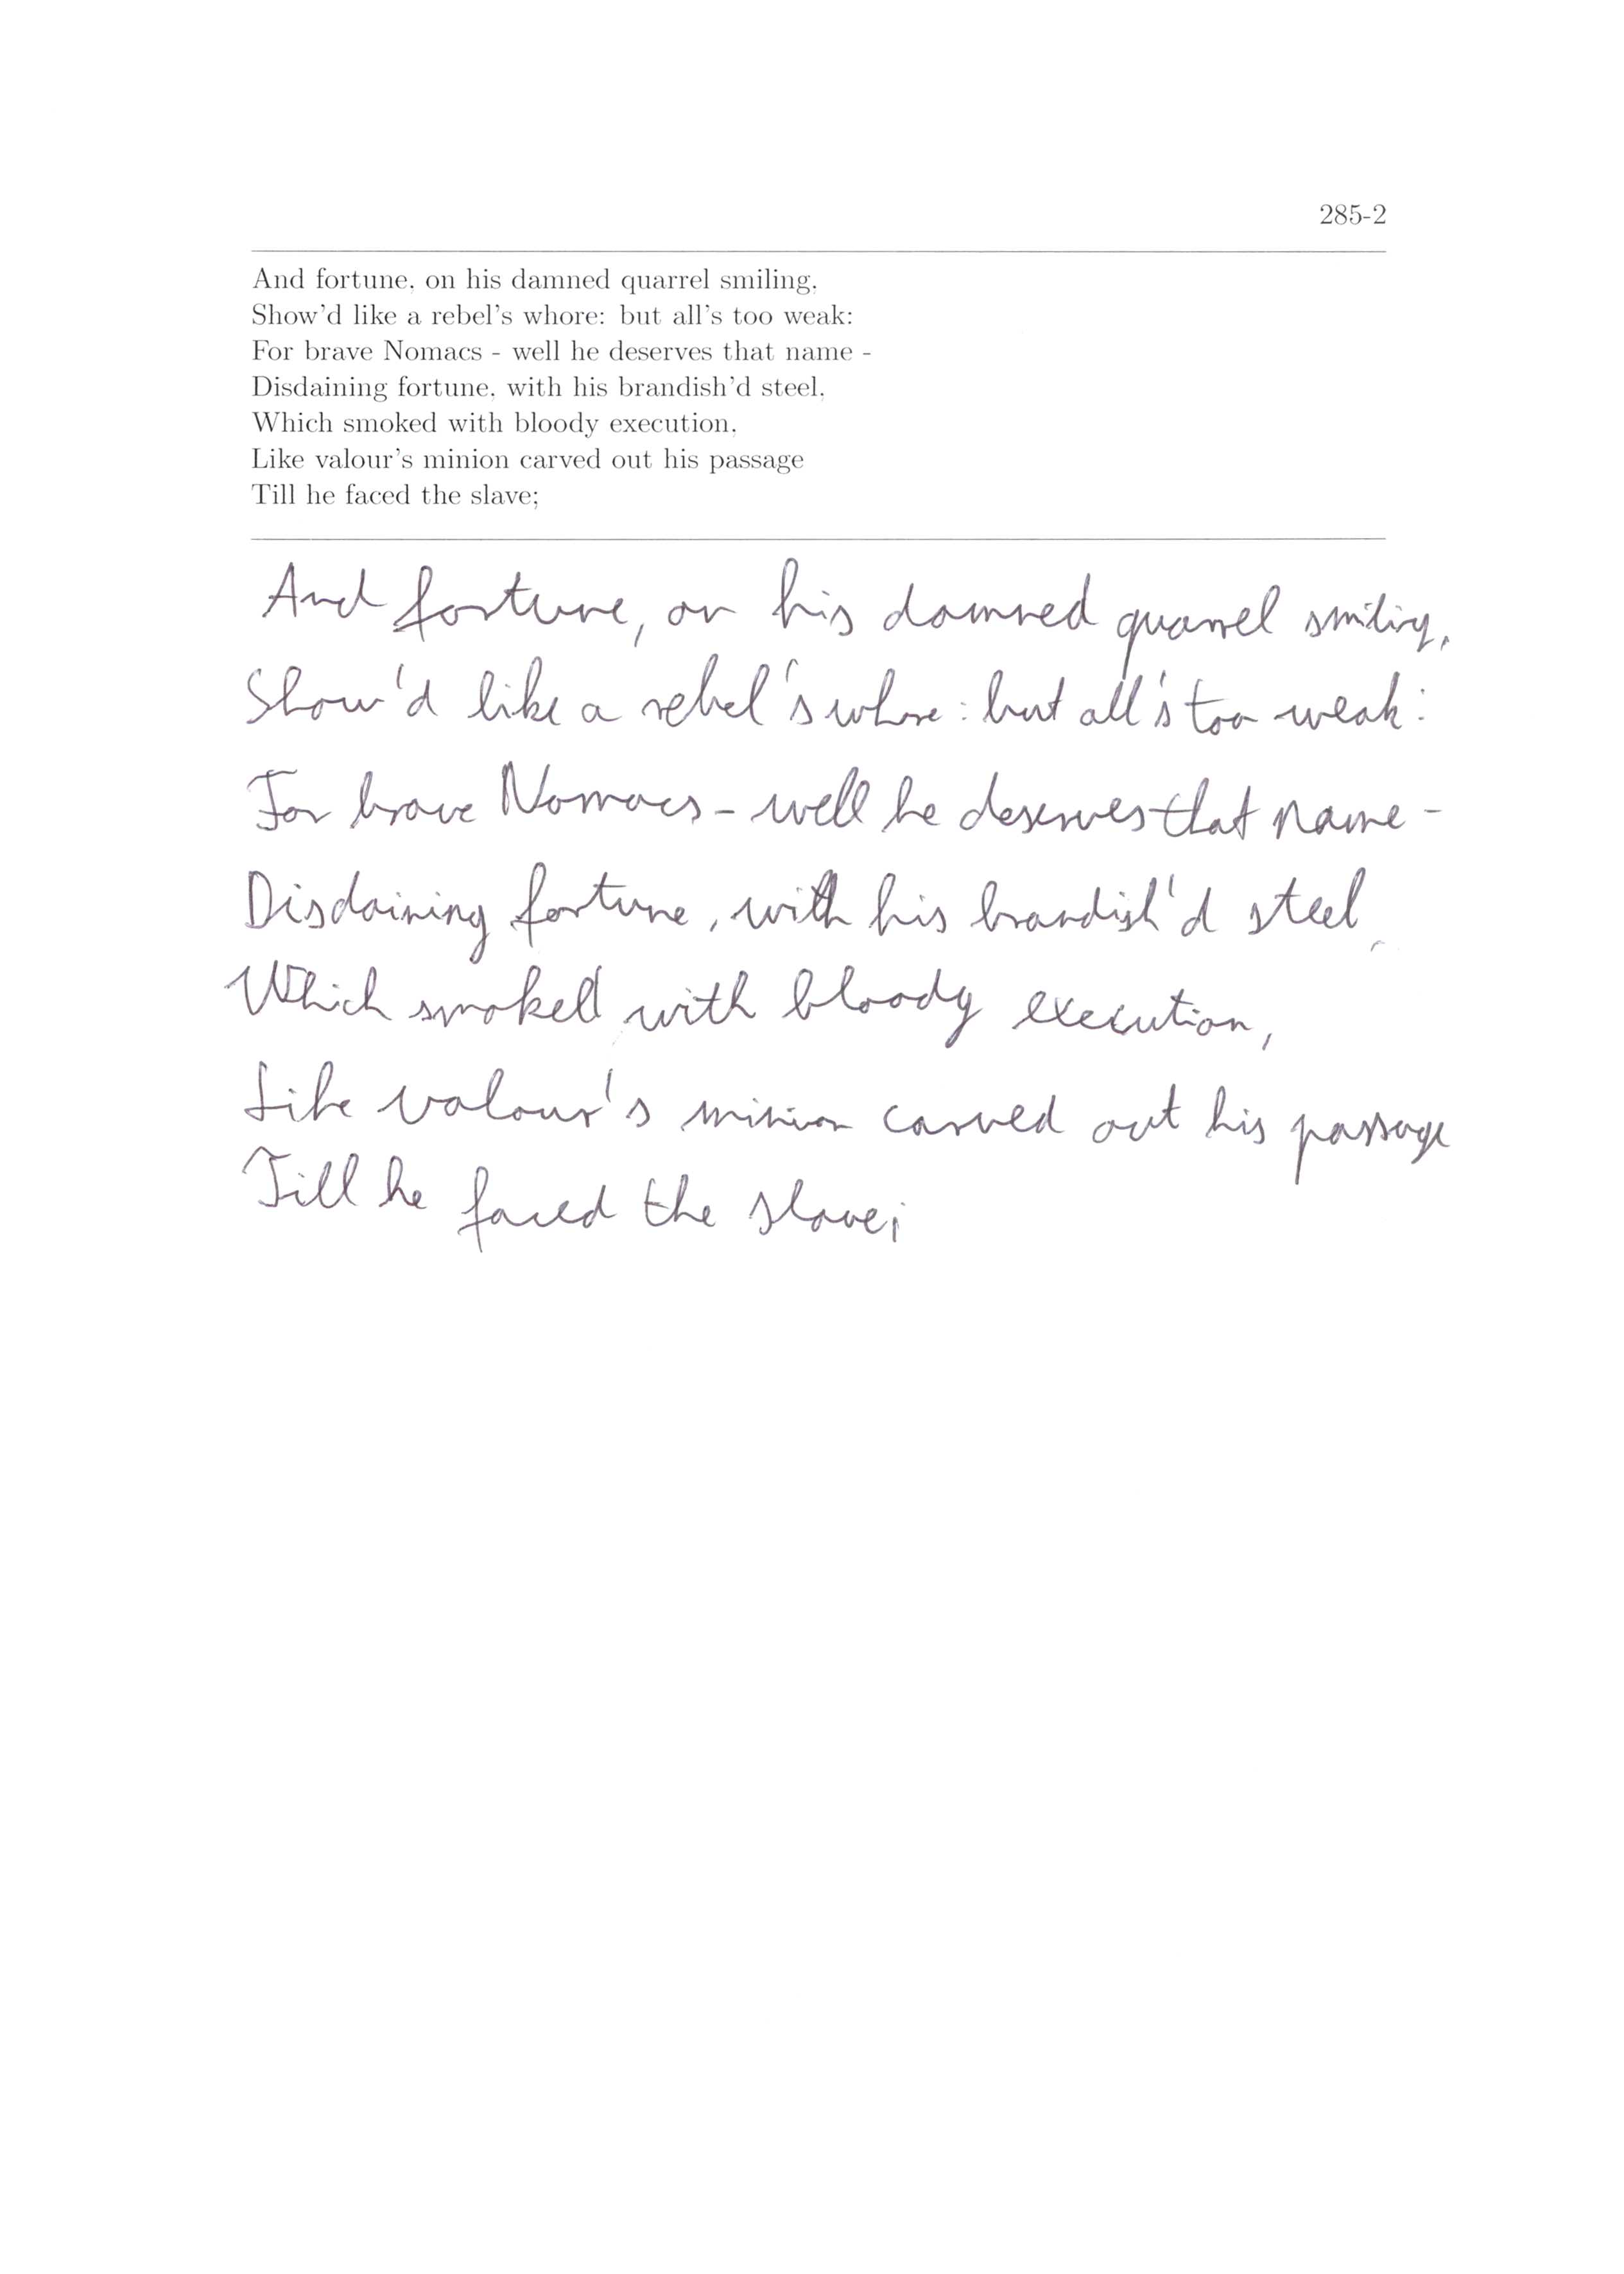 285-2
And fortune, on his damned quarrel smiling,
Show'd like a rebel's whore: but all's too weak:
For brave Nomacs - well he deserves that name -
Disdaining fortune, with his brandish'd steel,
Which smoked with bloody execution,
Like valour's minion carved out his passage
Till he faced the slave;
And fortune, on his damned quarrel smiling,
Show'd like a rebel's whore: but all's too weak:
For brave Nomacs - well he deserves that name -
Disdaining fortune, with his brandish'd steel,
Which smoked with bloody execution,
Like valour's minion carved out his passage
Till he faced the slave;